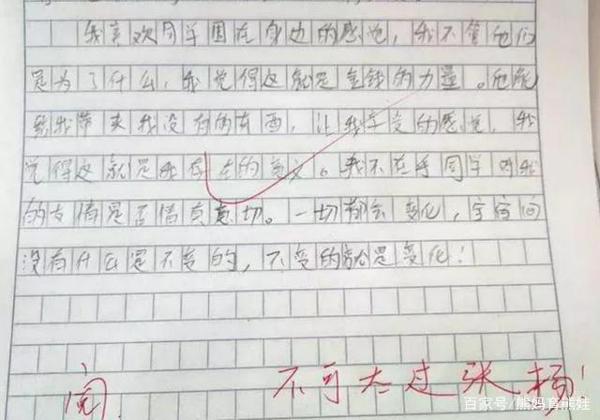 我喜欢同学围在身边的感觉，我不管他们
是为了什么，我觉得这就是金钱的力量。他能
给我带来我没有的东西，让我享受的感觉，我
觉得这就是我存在的意义。我不在乎同学对我
的友情是否情真意切。一切都会变化，宇宙间
没有什么是不变的，不变的就是变化！
阅. 不可太过张扬！
百家号/熊妈育熊娃